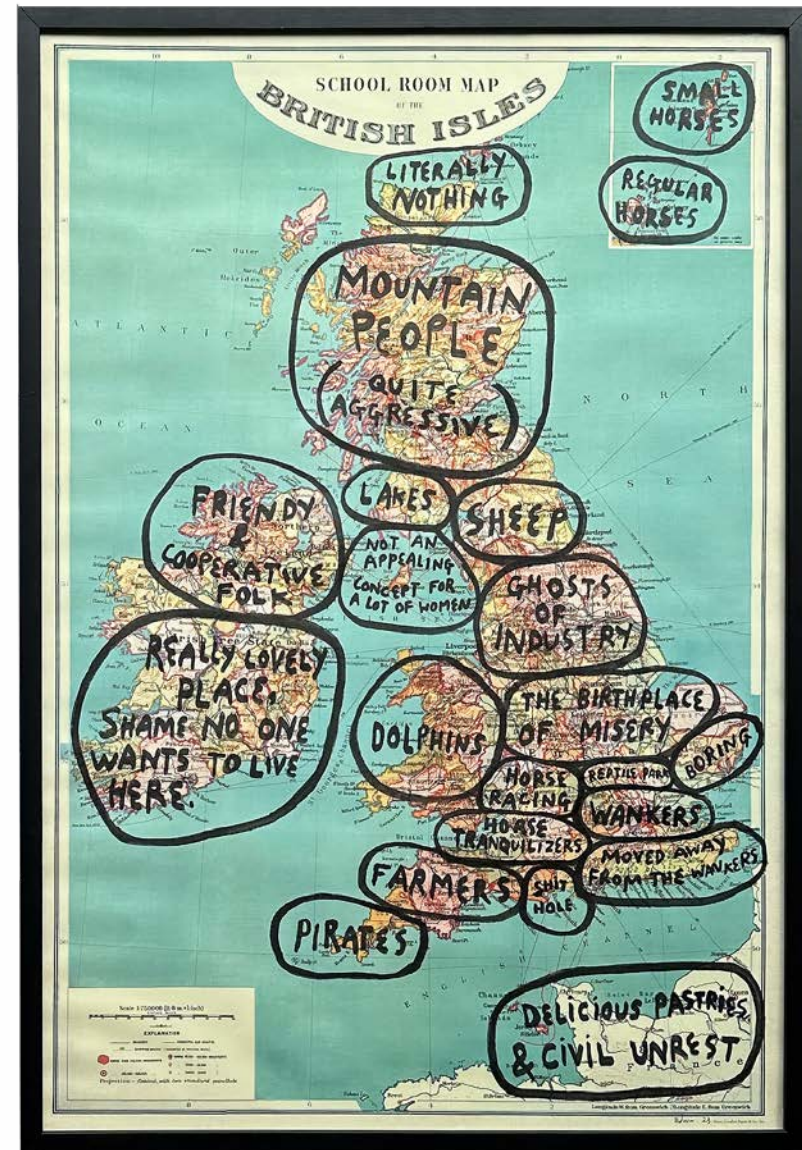 SCHOOL ROOM MAP
OF THE
BRITISH ISLES
SMALL
HORSES
REGULAR
HORSES
LITERALLY
NOTHING
MOUNTAIN
PEOPLE
(QUITE
AGGRESSIVE)
Outer
Hebrides
ATLANTIC
OCEAN
NORTH
SEA
FRIENDY
&
COOPERATIVE
FOLK
LAKES
SHEEP
NOT AN
APPEALING
CONCEPT FOR
A LOT OF WOMEN
GHOSTS
OF
INDUSTRY
REALLY LOVELY
PLACE,
SHAME NO ONE
WANTS TO LIVE
HERE.
Liverpool
DOLPHINS
THE BIRTHPLACE
OF MISERY
BORING
HORSE
RACING
REPTILE PARK
WANKERS
Bristol Channel
HORSE
TRANQUILIZERS
MOVED AWAY
FROM THE WANKERS
FARMERS
SHIT
HOLE
PIRATES
ENGLISH CHANNEL
DELICIOUS PASTRIES
& CIVIL UNREST
France
EXPLANATION